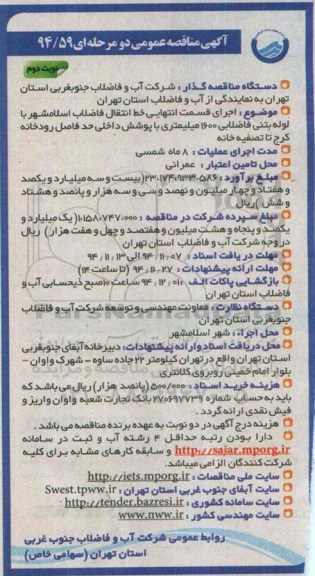 آگهی مناقصه عمومی دو مرحله ای ۹۴/۵۹
نوبت دوم
دستگاه مناقصه گذار : شرکت آب و فاضلاب جنوبغربی استان
تهران به نمایندگی از آب و فاضلاب استان تهران
موضوع : اجرای قسمت انتهایی خط انتقال فاضلاب اسلامشهر با
لوله بتنی فاضلابی ۱۶۰۰ میلیمتری با پوشش داخلی حد فاصل رودخانه
کرج تا تصفیه خانه
مدت اجرای عملیات : ۸ ماه شمسی
محل تامین اعتبار : عمرانی
مبلغ برآورد : ۲۳،۱۷۴،۹۳۳،۵۸۶ (بیست و سه میلیارد و یکصد
و هفتاد و چهار میلیون و نهصد و سی و سه هزار و پانصد و هشتاد
و شش) ریال
مبلغ سپرده شرکت در مناقصه : ۱،۱۵۸،۷۴۷،۰۰۰ (یک میلیارد و
یکصد و پنجاه و هشت میلیون و هفتصد و چهل و هفت هزار) ریال
در وجه شرکت آب و فاضلاب استان تهران
مهلت در یافت اسناد : ۹۴/۱۱/۰۷ الی ۹۴/۱۱/۱۳
مهلت ارائه پیشنهادات : ۹۴/۱۱/۲۷ (تا ساعت ۱۴)
بازگشایی پاکات الف : ۹۴/۱۲/۰۱ ساعت ۱۰ صبح ذیحسابی آب و
فاضلاب استان تهران
دستگاه نظارت : معاونت مهندسی و توسعه شرکت آب و فاضلاب
جنوبغربی استان تهران
محل اجرا : شهر اسلامشهر
محل دریافت اسناد و ارائه پیشنهادات : دبیرخانه آبفای جنوبغربی
استان تهران واقع در تهران کیلومتر ۲۲ جاده ساوه - شهرک واوان -
بلوار امام خمینی روبروی کلانتری
هزینه خرید اسناد : ۵۰۰/۰۰۰ (پانصد هزار) ریال می باشد که
باید به حساب شماره ۲۷۰۶۹۷۷۳۹ بانک تجارت شعبه واوان واریز و
فیش نقدی ارائه گردد .
هزینه درج آگهی در دو نوبت به عهده برنده مناقصه می باشد .
دارا بودن رتبه حداقل ۴ رشته آب و ثبت در سامانه
http://sajar.mporg.ir و سابقه کارهای مشابه برای کلیه
شرکت کنندگان الزامی میباشد.
سایت ملی مناقصات : http://iets.mporg.ir
سایت آبفای جنوب غربی استان تهران : Swest.tpww.ir
سایت سامانه کشوری : http://tender.bazresi.ir
سایت مهندسی کشور : www.nww.ir
روابط عمومی شرکت آب و فاضلاب جنوب غربی
استان تهران (سهامی خاص)